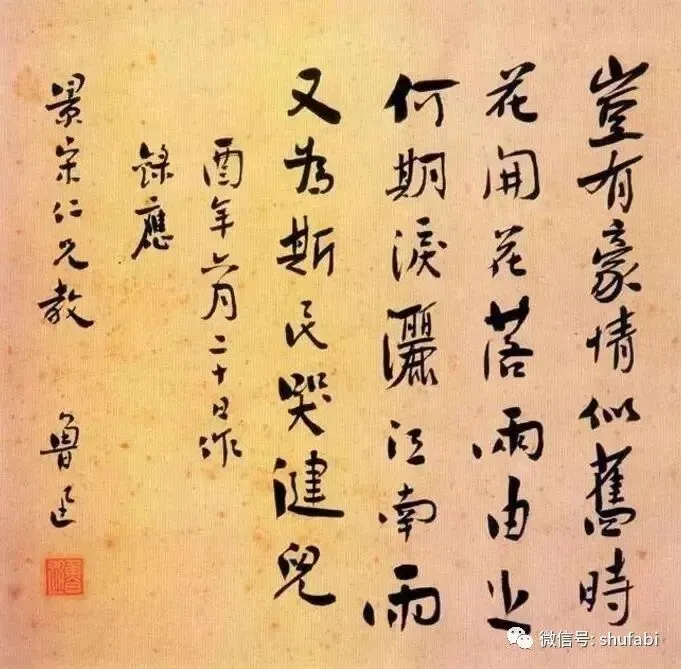 豈有豪情似舊時
花開花落兩由之
何期淚灑江南雨
又為斯民哭健兒
酉年六月二十日作
錄應
景宋仁兄教
魯迅
微信号: shufabi